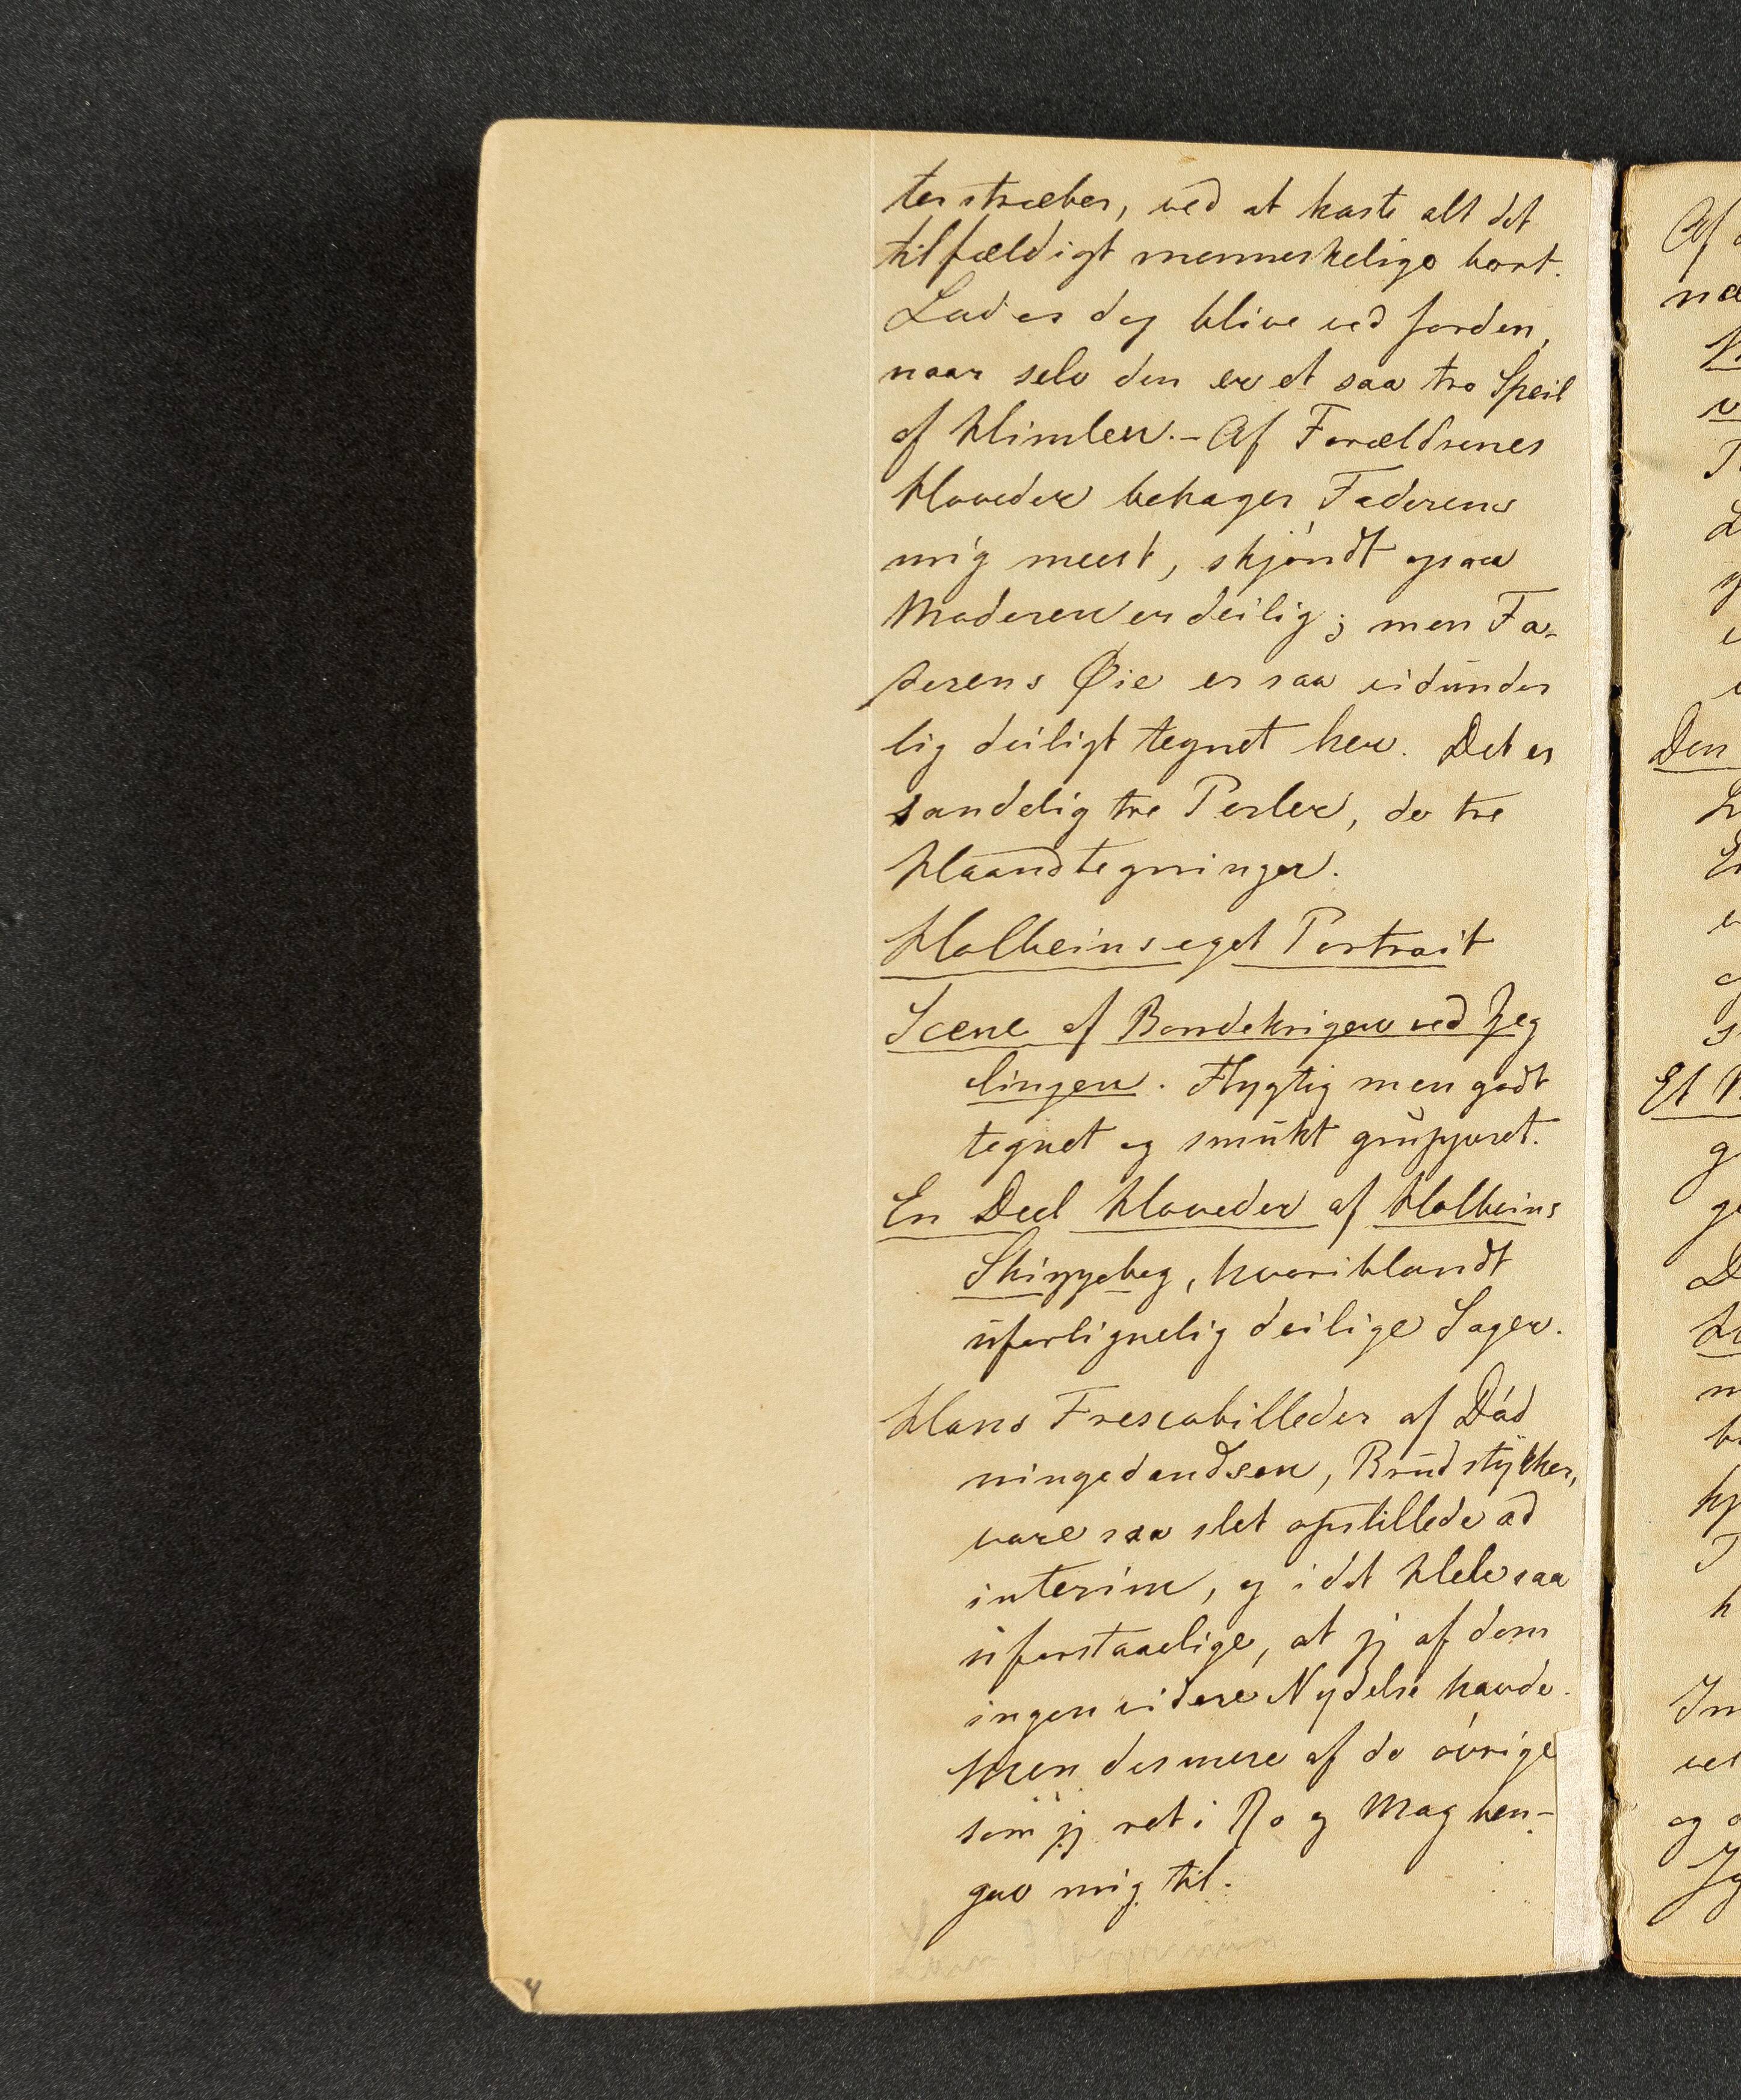 terstræber, ved at kaste alt det
tilfældigt menneskelige bort.
Lad os dog blive ved Jorden,
naar selv den er et saa tro Speil
af Himlen. - Af Forældrenes
Hoveder behager Faderens
mig meest, skjóndt ogsaa
Moderen er deilig; men Fa-
derens Øie er saa vidunder
lig deiligt tegnet her. Det er
sandelig tre Perler, de tre
Haandtegninger.
Holbeins eget Portrait
Scene af Bondekrigen ved
lingen. Flygtig men godt
tegnet og smukt grupperet.
En Deel Hoveder af Holbeins
Skizzebog, hvoriblandt
uforlignelig deilige Sager.
Hans Frescobilleder af Dód
ningedandsen, Brudstykker,
vare saa slet opstillede ad
interim, og i det Hele saa
uforstaaelige, at jeg af dem
ingen videre Nydelse havde.
Men desmere af de óvrige
som jeg ret i Ro og Mag hen-
gav mig til.
Af
næ
Den
Et
In
vel
og